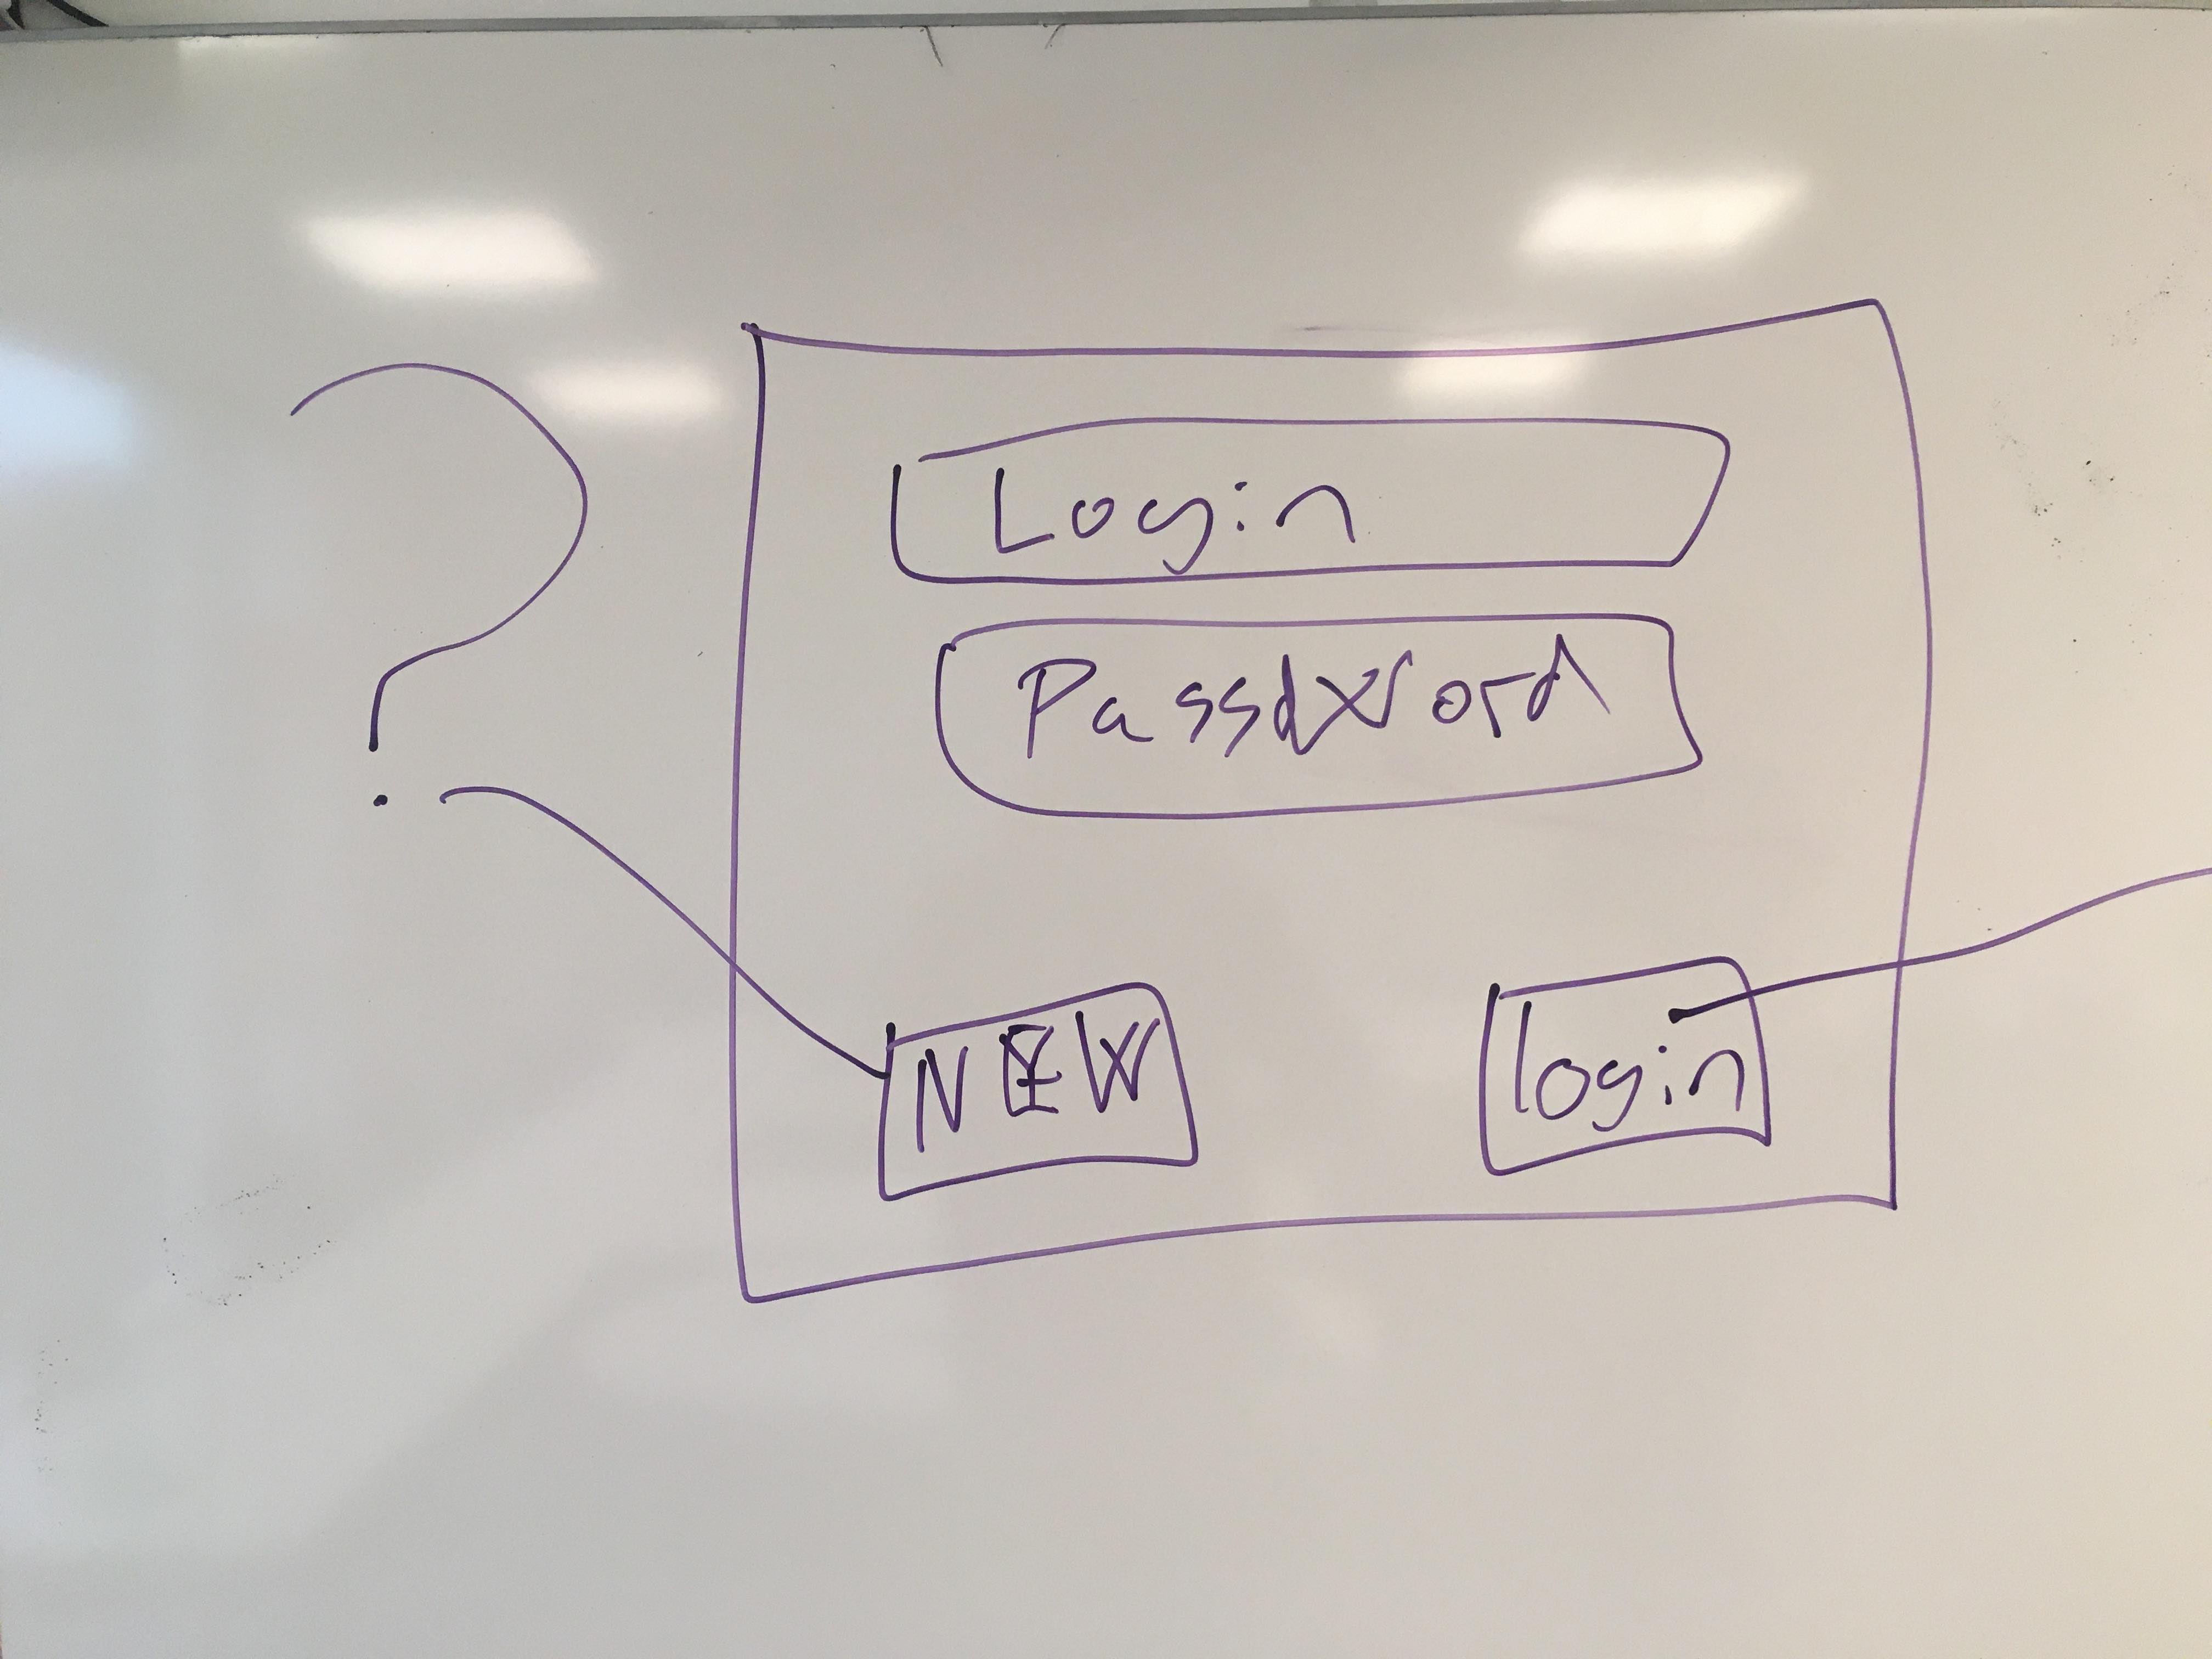 ?
Login
Password
NEW
login